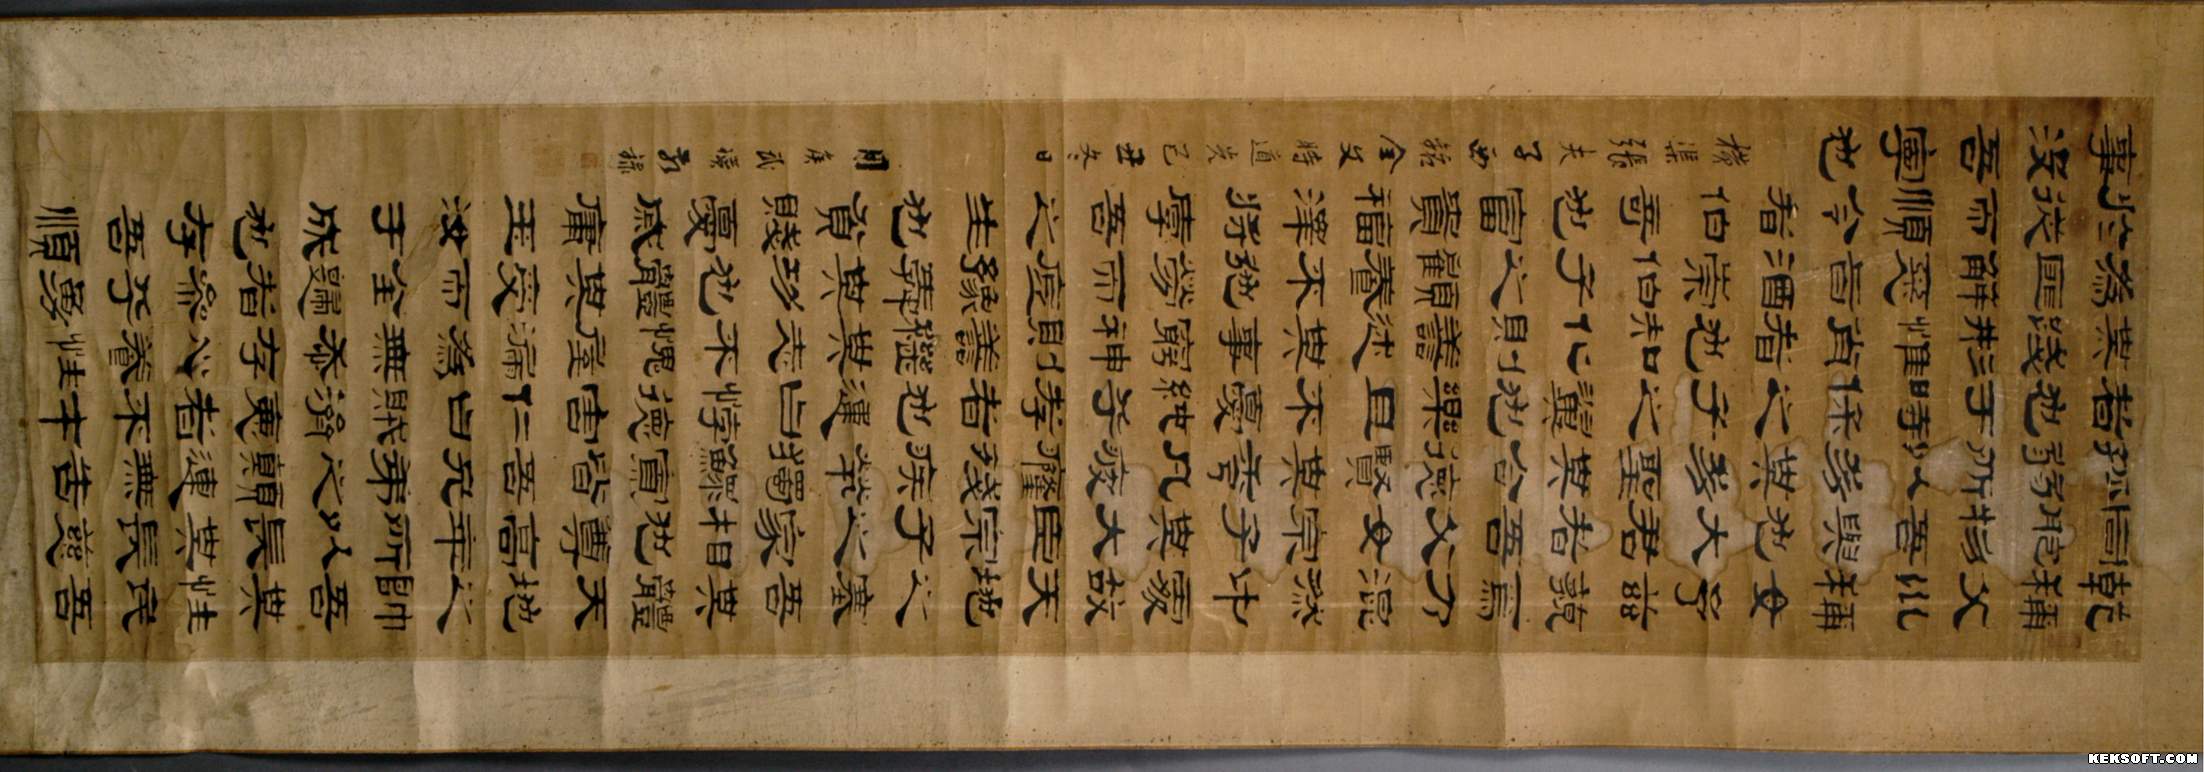 乾稱父巛稱母予茲藐焉乃混然中處故天地之塞吾其體天地之帥吾其性民吾
同胞物吾與也大君者吾父母宗子其大臣宗子之家相也尊高年所以長其長慈
孤弱所以幼其幼聖其合德賢其秀凡疲癃殘疾惸獨鰥寡皆吾兄弟之顛連無告
者也于時保之子之翼也樂且不憂純乎孝者也違曰悖德害仁曰賊濟惡者不才
其踐形惟肖者也知化則善述其事窮神則善繼其志不愧屋漏爲無忝存心養性
爲匪懈惡旨酒崇伯子之顧養不弛勞而厎豫舜其功也體其受而全歸者參乎勇
於從而順令者伯奇也富貴福澤將厚吾之生也貧賤憂戚庸玉汝于成也存吾順
事沒吾寧也
橫渠張夫子西銘全文時道光己丑冬日
侯武
KEKSOFT.COM